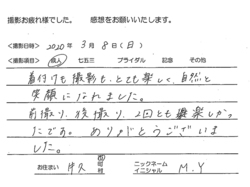 撮影お疲れ様でした。 感想をお願いいたします。
<撮影日時> 2020年 3月 8日(日)
<撮影項目> 成人 七五三 ブライダル 記念 その他
着付けも撮影も、とても楽しく、自然と
笑顔になれました。
前撮り、後撮り、2回とも楽しかっ
たです。ありがとうございま
した。
お住まい 津久 市 ニックネーム イニシャル M.Y